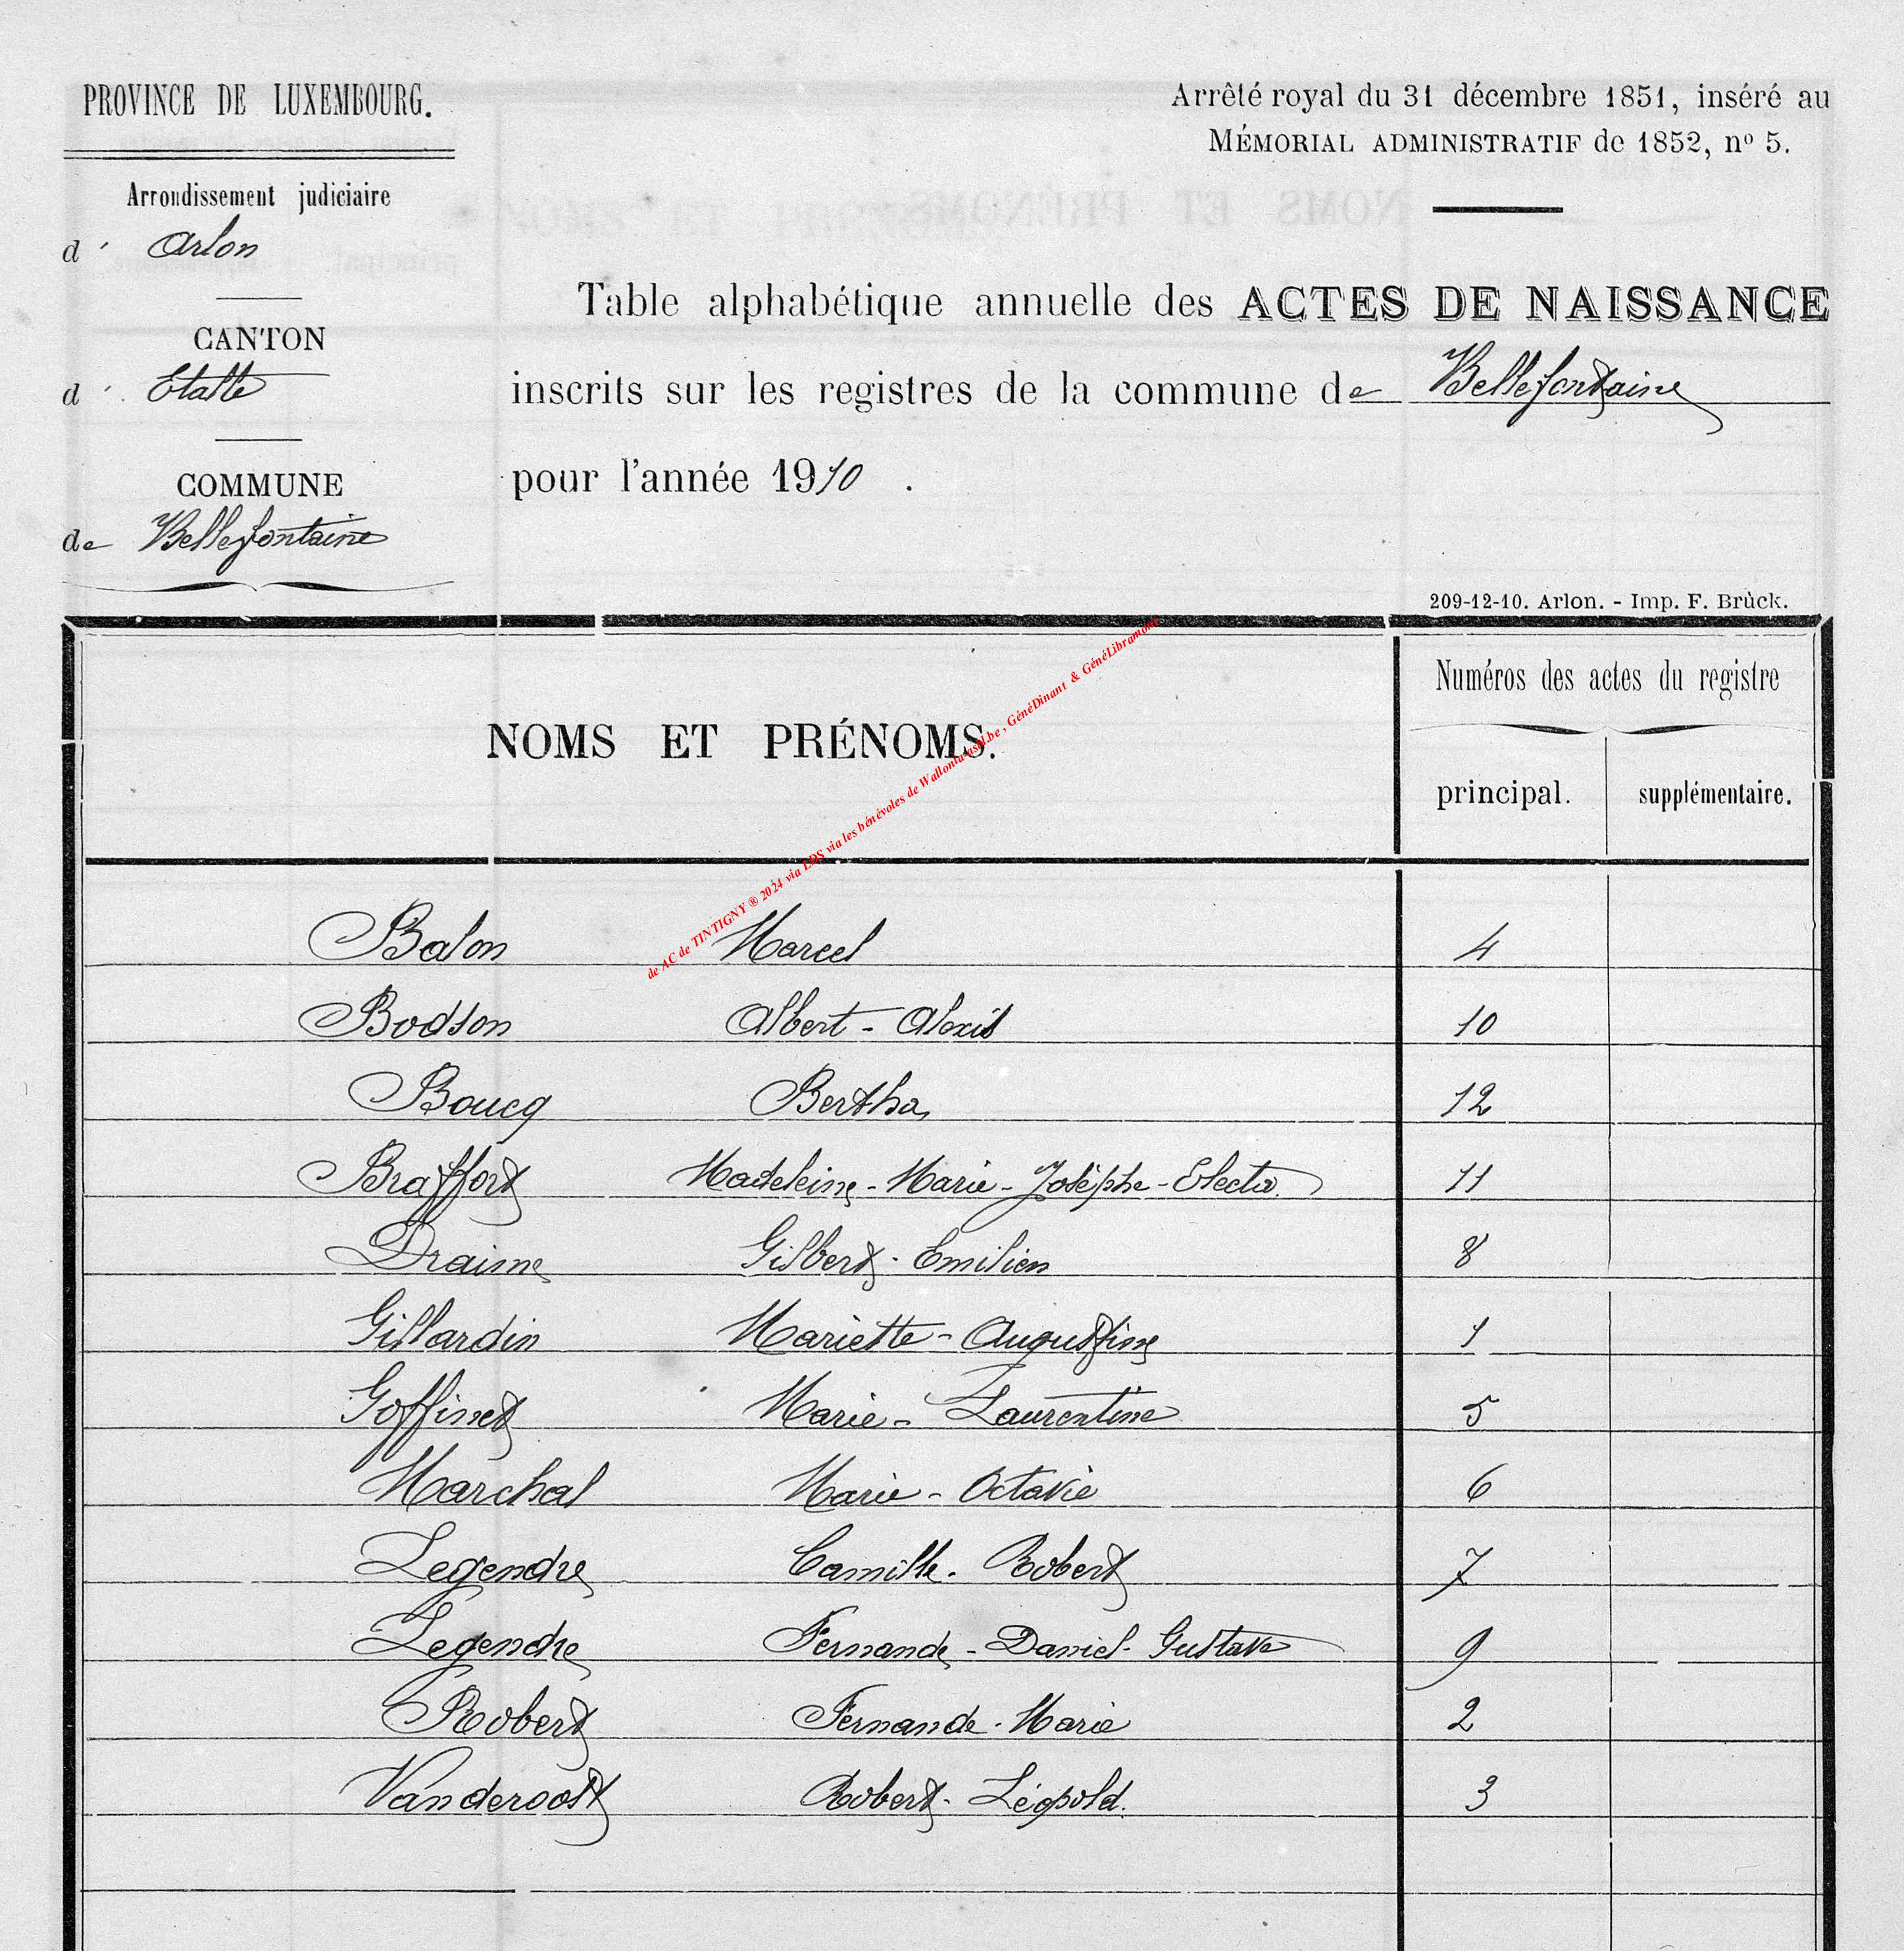 PROVINCE DE LUXEMBOURG.
Arrondissement judiciaire
d' Arlon
CANTON
d'. Etalle
COMMUNE
de Bellefontaine
Arrêté royal du 31 décembre 1851, inséré au
MÉMORIAL ADMINISTRATIF de 1852, nº 5.
Table alphabétique annuelle des ACTES DE NAISSANCE
inscrits sur les registres de la commune de Bellefontaine
pour l'année 1910 .
209-12-10. Arlon. - Imp. F. Brück.
NOMS ET PRÉNOMS.
Numéros des actes du registre
principal. supplémentaire.
de AC de TINTIGNY ® 2024 via LDS via les bénévoles de Wallonia asbl.be , GénéDinant & GénéLibramont
Balon Marcel 4
Bodson Albert - Alexis 10
Boucq Bertha 12
Braffort Madeleine - Marie - Josèphe - Electa 11
Draime Gilbert - Emilien 8
Gillardin Mariette - Augustine 1
Goffinet Marie - Laurentine 5
Marchal Marie - Octavie 6
Legendre Camille - Robert 7
Legendre Fernande - Daniel - Gustave 9
Robert Fernande - Marie 2
Vanderoost Robert - Léopold. 3